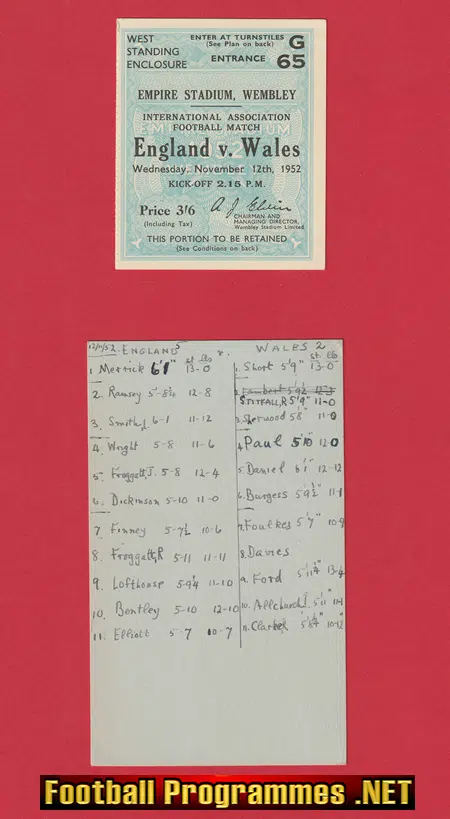 WEST
STANDING
ENCLOSURE
ENTER AT TURNSTILES
(See Plan on back)
ENTRANCE
G
65
EMPIRE STADIUM, WEMBLEY
INTERNATIONAL ASSOCIATION
FOOTBALL MATCH
England v. Wales
Wednesday, November 12th, 1952
KICK-OFF 2.15 P.M.
Price 3/6
(Including Tax)
A. J. Elvin
CHAIRMAN AND
MANAGING DIRECTOR,
Wembley Stadium Limited
THIS PORTION TO BE RETAINED
(See Conditions on back)
12/11/52. ENGLAND 5 v. WALES 2
st lbs
st. lb
1 Merrick 6'1" 13-0
2 Ramsey 5-8½ 12-8
3. Smith L. 6-1 11-12
4 Wright 5-8 11-6
5 Froggatt, J. 5-8 12-4
6 Dickinson 5-10 11-0
7 Finney 5-7½ 10-6
8. Froggatt, R 5-11 11-11
9. Lofthouse 5-9¼ 11-10
10. Bentley 5-10 12-10
11. Elliott 5-7 10-7
1. Short 5'9" 13-0
2. Lambert 5'9½
STITFALL, R 5'9" 11-0
3 Sherwood 5'8" 11-0
4 Paul 5'10" 12-0
5. Daniel 6'1" 12-12
6. Burgess 5'9½" 11-1
7. Foulkes 5'7" 10-9
8. Davies
9. Ford 5'11¼" 13-4
10. Allchurch I. 5'11"
11. Clarke 10-12
Football Programmes .NET